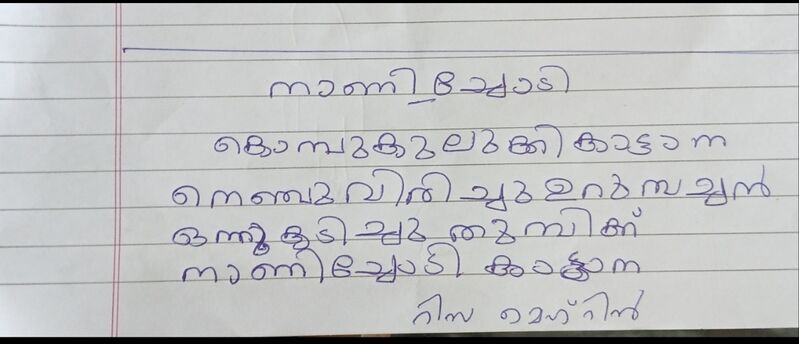 നാണിച്ചോടി
കൊമ്പുകുലുക്കി കാട്ടാന
നെഞ്ചുവിരിച്ചു ഉറുമ്പച്ചൻ
ഒന്നുകടിച്ചു തുമ്പിക്ക്
നാണിച്ചോടി കാട്ടാന
റിസ മെഹ്റിൻ